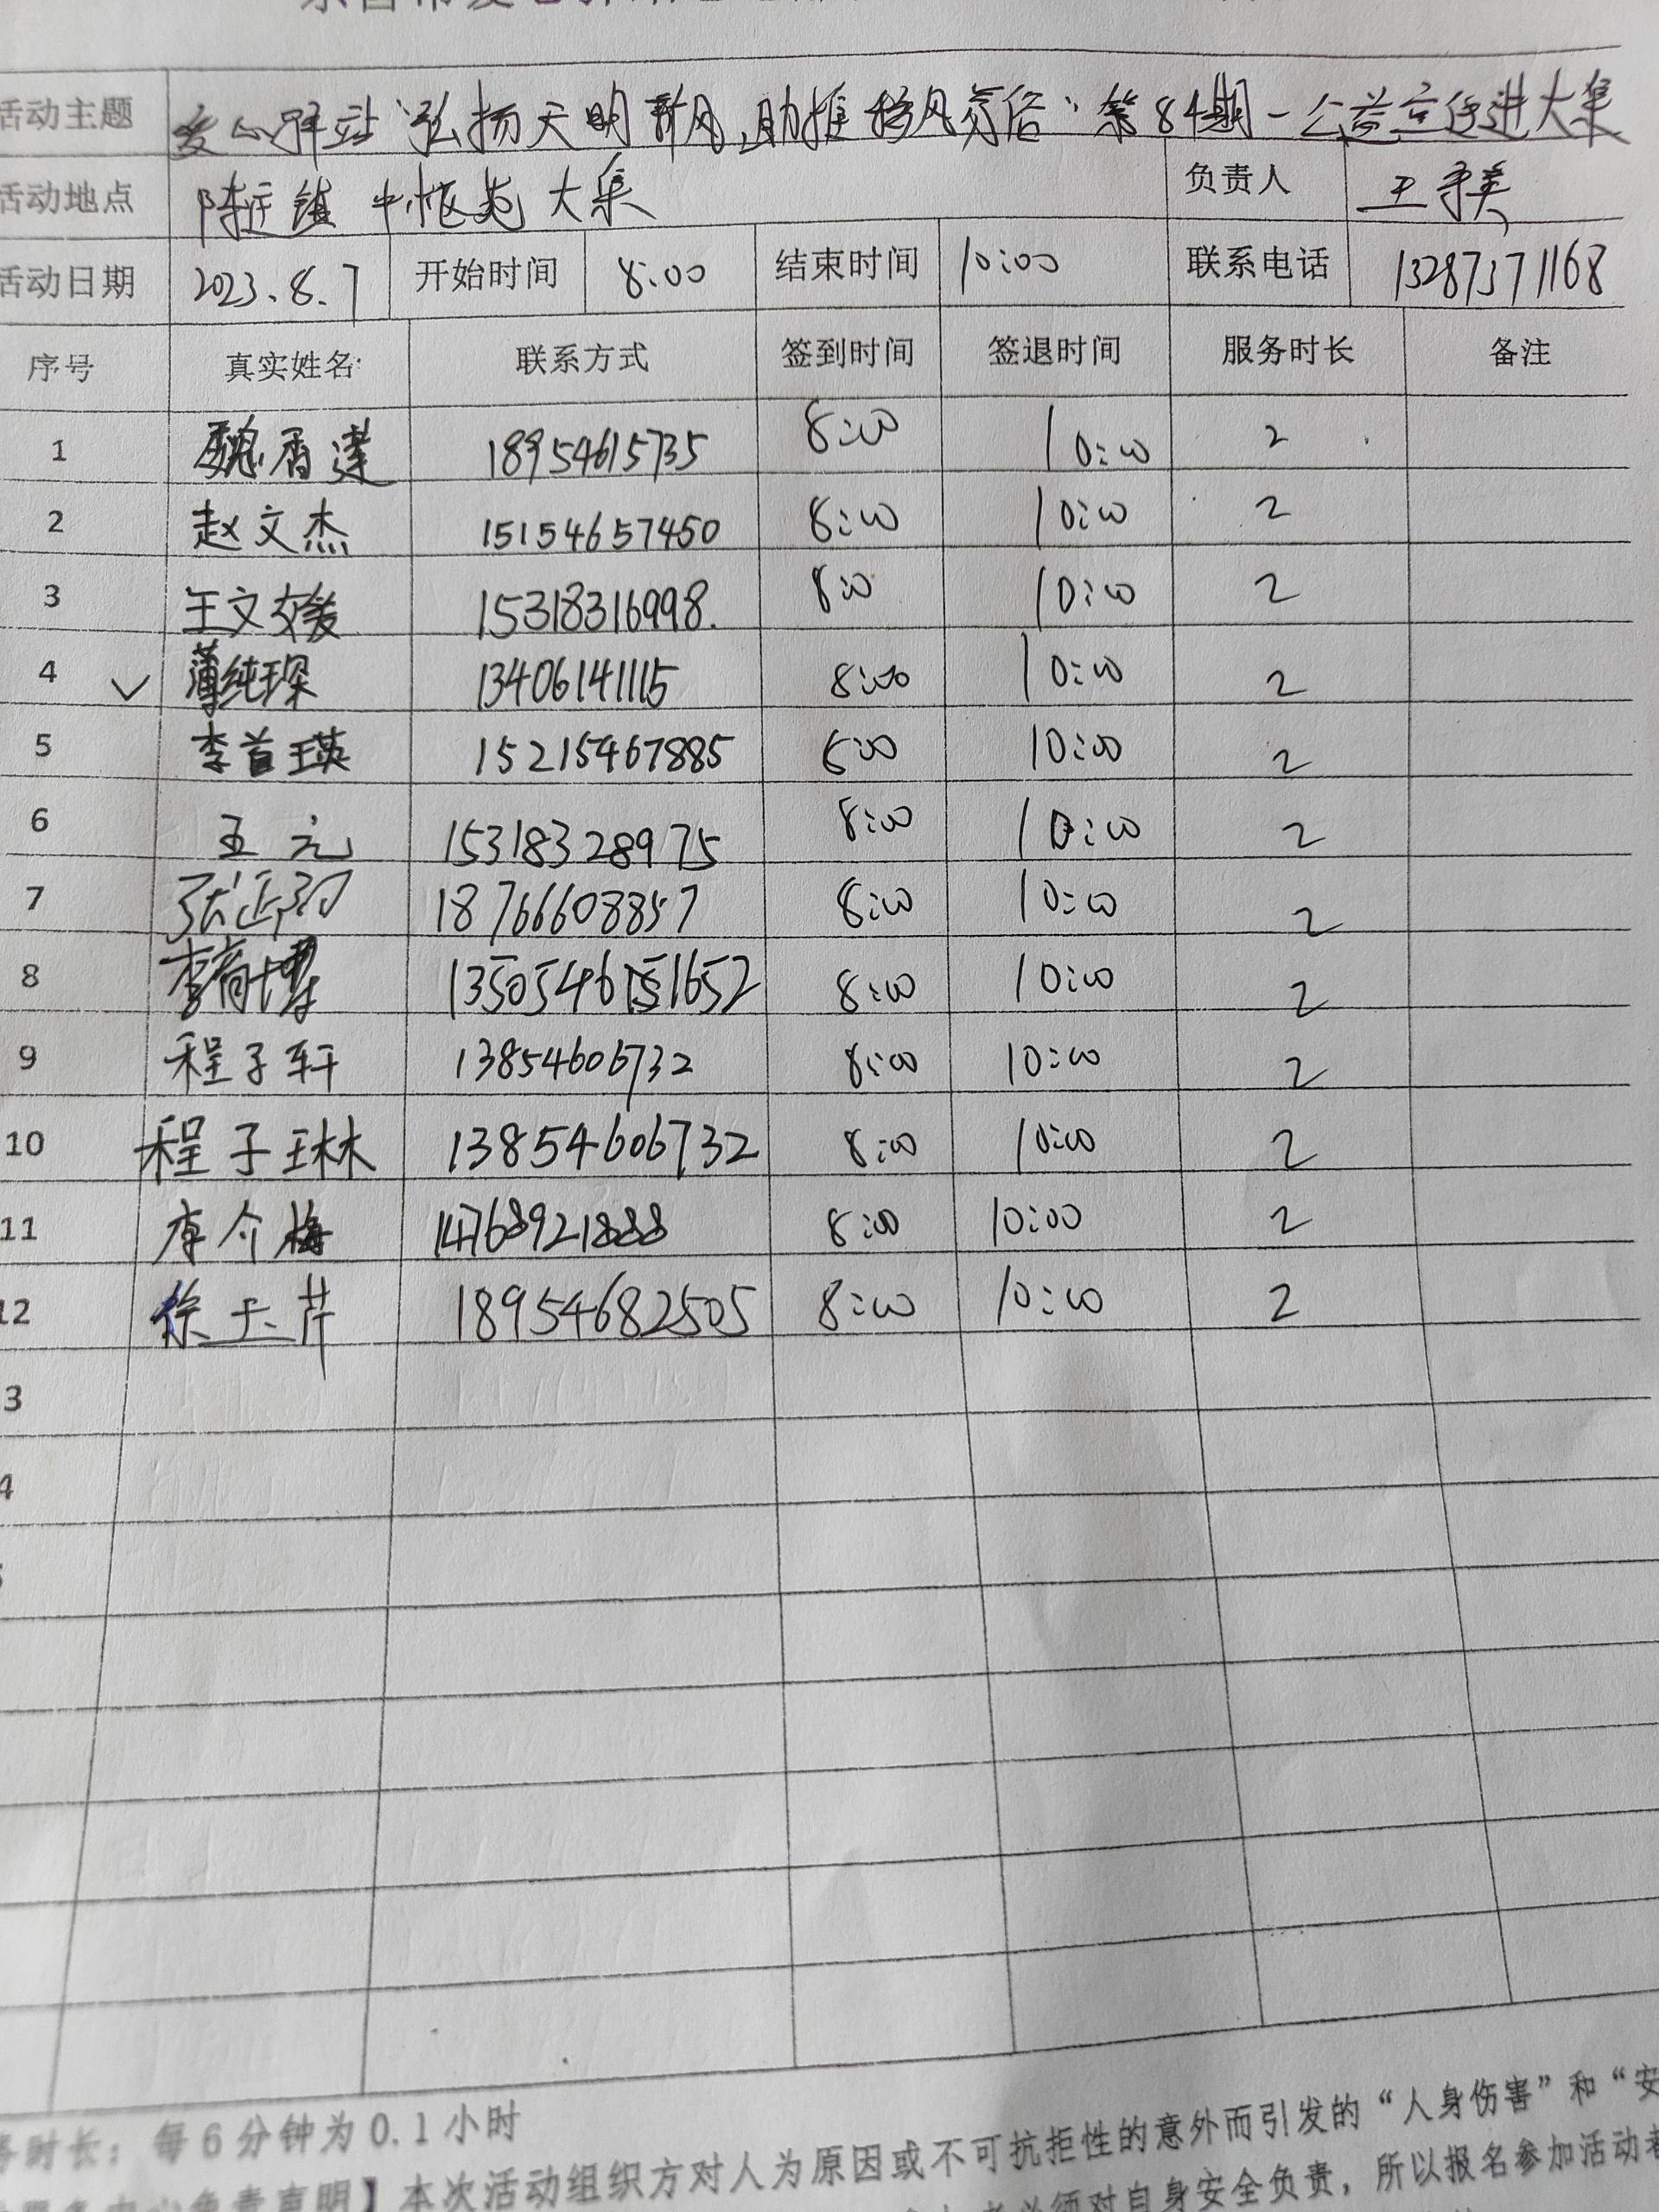 活动主题 爱心驿站"弘扬文明新风,助推移风易俗"第84期-公益宣传进大集
活动地点 陈庄镇 中枢苑大集 负责人 王
活动日期 2023.8.7 开始时间 8:00 结束时间 10:00 联系电话 13287371168
序号 真实姓名 联系方式 签到时间 签退时间 服务时长 备注
1 魏香莲 18954615735 8:00 10:00 2
2 赵文杰 15154657450 8:00 10:00 2
3 王文 15318316998. 8:00 10:00 2
4 ✓ 薄纯琛 13406141115 8:00 10:00 2
5 李首瑛 15215467885 8:00 10:00 2
6 王元 15318328975 8:00 10:00 2
7 张 18766608857 8:00 10:00 2
8 李 8:00 10:00 2
9 程子轩 13854606732 8:00 10:00 2
10 程子琳 13854606732 8:00 10:00 2
11 介梅 14768921888 8:00 10:00 2
12 徐玉芹 18954682505 8:00 10:00 2
3
4
务时长:每6分钟为0.1小时
免责声明】本次活动组织方对人为原因或不可抗拒性的意外而引发的“人身伤害”和“安
必须对自身安全负责,所以报名参加活动者